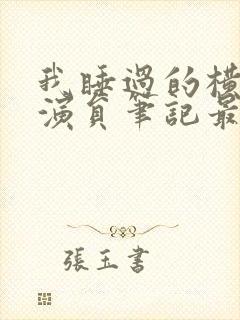 我睡過的橫
演員筆記最
張玉書